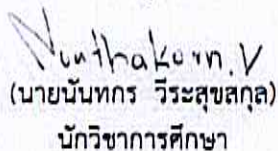 Nunthakorn.V
(นายนันทกร วีระสุขสกุล)
นักวิชาการศึกษา